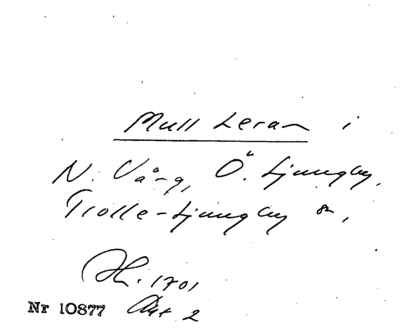 Mull Leran i
N. Vång, Ö. Ljungby,
Trolle-Ljungby sn,
1701
Nr 10877 Akt 2